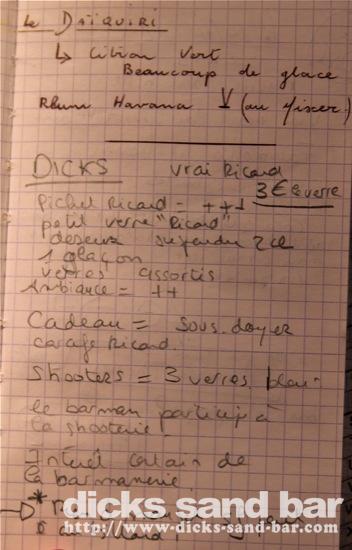 Le Daïquiri
↳ Citron Vert
Beaucoup de glace
Rhum Havana (au mixer)
DICKS vrai Ricard
3€ le verre
Pichet Ricard = +++
petit verre "Ricard"
doseur suspendu 2cl
1 glaçon
verres assortis
Ambiance = ++
Cadeau = sous-doyer
carafe Ricard.
Shooters = 3 verres
le barman participe à
la shooterie.
Interêt certain de
la barmanerie.
dicks sand bar
http://www.dicks-sand-bar.com